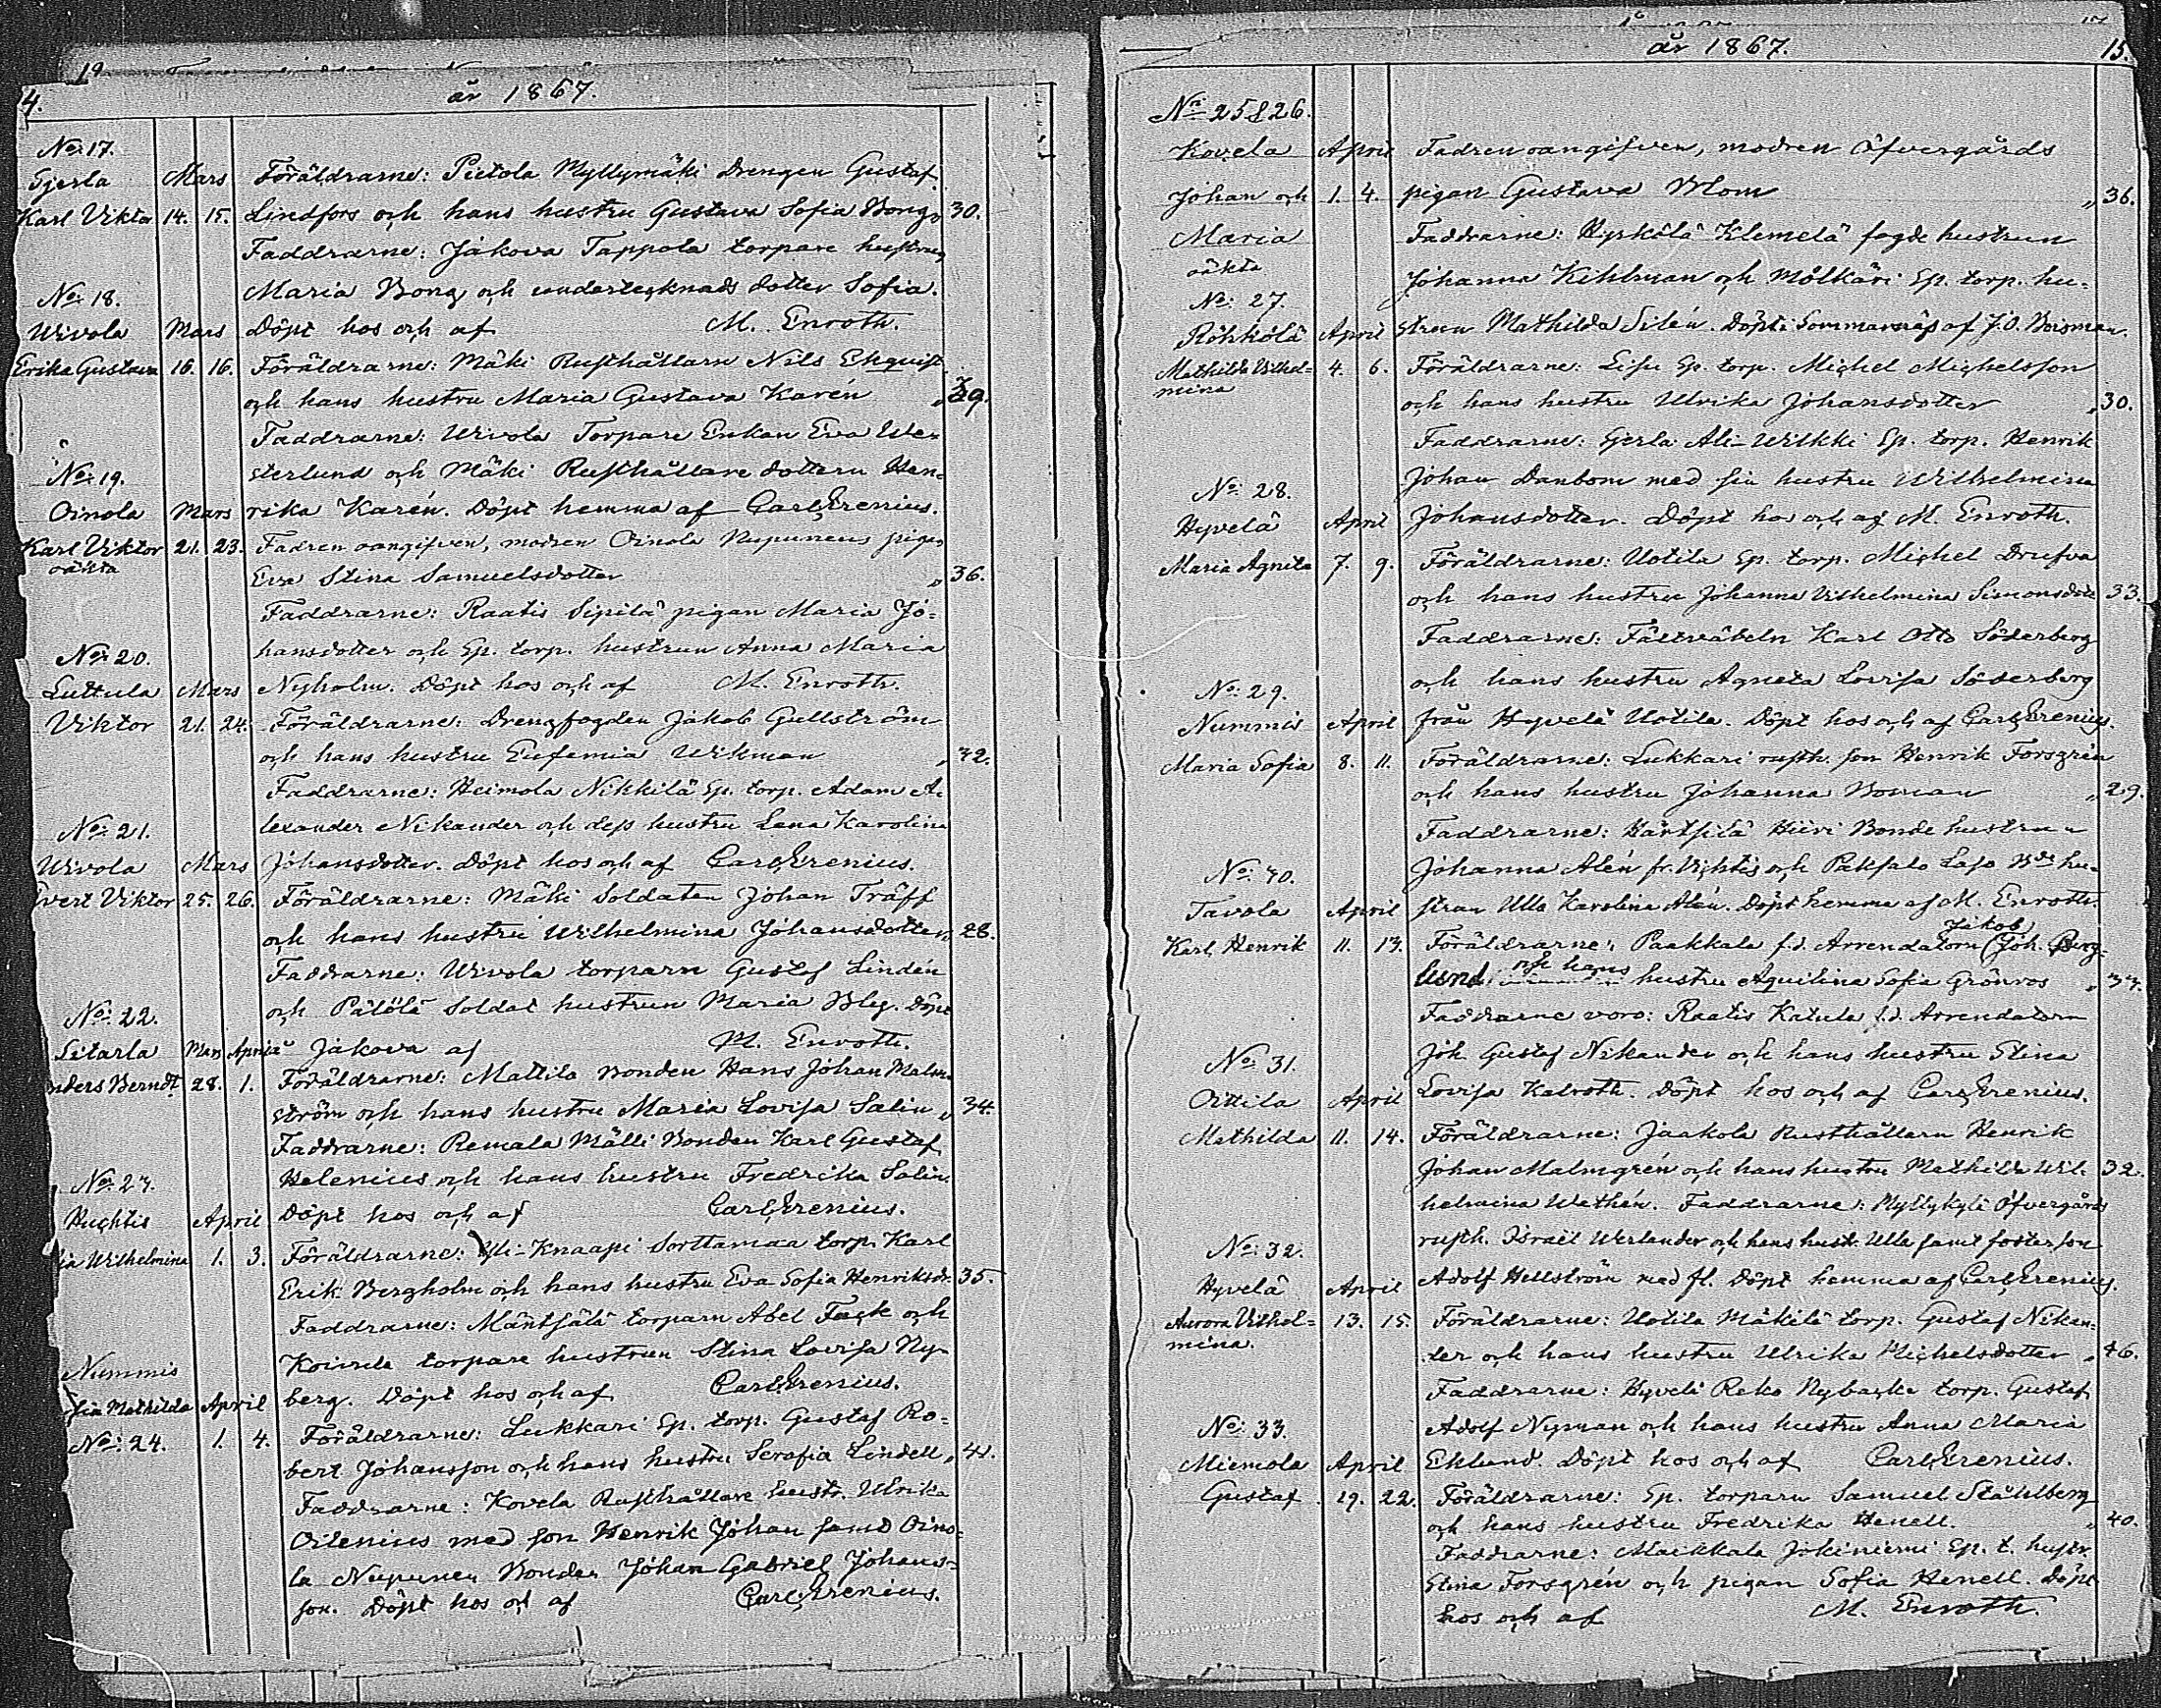 år 1867.
4.
No: 17.
Gjerla Mars Föräldrarne: Pietola Myllymäki Drengen Gustaf
Karl Viktor 14. 15. Lindfors och hans hustru Gustava Sofia Bong „ 30.
Faddrarne: Jakova Tappola torpare hustrun
Maria Bong och undertecknads dotter Sofia.
No: 18.
Wivola Mars Döpt hos och af M. Enroth.
Erika Gustava 16. 16. Föräldrarne: Mäki Rusthållarn Nils Ekquist
och hans hustru Maria Gustava Karén „ 39.
Faddrarne: Wivola Torpare Enkan Eva We-
sterlund och Mäki Rusthållare dottern Hen-
No: 19.
Oinola Mars rika Karén. Döpt hemma af Carl Grenius.
Karl Viktor 21. 23. Fadren oangifven, modren Oinola Nupuneus pigan
oäkta
Eva Stina Samuelsdotter „ 36.
Faddrarne: Raatis Sipilä pigan Maria Jo-
hansdotter och Sp. torp. hustrun Anna Maria
No: 20.
Luttula Mars Nyholm. Döpt hos och af M. Enroth.
Viktor 21. 24. Föräldrarne: Drengfogden Jakob Gullström
och hans hustru Eufemia Wikman „ 32.
Faddrarne: Heimola Nikkilä Sp. torp. Adam A-
lexander Nikander och dess hustru Lena Karolina
No: 21.
Wivola Mars Johansdotter. Döpt hos och af Carl Grenius.
Evert Viktor 25. 26. Föräldrarne: Mäki Soldaten Johan Träff
och hans hustru Wilhelmina Johansdotter „ 28.
Faddrarne: Wivola torparn Gustaf Lindén
och Pälölä Soldat hustrun Maria Bly. Döpt
No: 22.
Sitarla Mars April å Jakova af M. Enroth.
Anders Berndt 28. 1. Föräldrarne: Mattila Bonden Hans Johan Malm-
ström och hans hustru Maria Lovisa Salin „ 34.
Faddrarne: Remala Mälli Bonden Karl Gustaf
Helenius och hans hustru Fredrika Salin.
No: 23.
Huhtis April Döpt hos och af Carl Grenius.
Wilhelmina 1. 3. Föräldrarne: Yli-Knaapi Sorttamaa torp. Karl
Erik Bergholm och hans hustru Eva Sofia Henriksdr. 35.
Faddrarne: Mäntsälä torparn Abel Fack och
Koivula torpare hustrun Stina Lovisa Ny-
Nummis berg. Döpt hos och af Carl Grenius.
Mathilda April
No: 24. 1. 4. Föräldrarne: Lukkari Sp. torp. Gustaf Ro-
bert Johansson och hans hustru Serafia Lindell „ 41.
Faddrarne: Kovela Rusthållare hustr. Ulrika
Oilenius med son Henrik Johan samt Oino-
la Nupunen Bonden Johan Gabriel Johans-
son. Döpt hos och af Carl Grenius.
år 1867. 15.
Nri 25 & 26.
Kovela April Fadren oangifven, modren Öfvergårds
Johan och 1. 4. pigan Gustava Blom „ 36.
Maria Faddrarne: Hyrkölä Klemelä fogde hustrun
oäkta Johanna Kihlman och Mölkäri Sp. torp. hu-
No: 27.
Röhkölä April strun Mathilda Silén. Döpt i Sommarnäs af J.O. Boisman.
Mathilda Vilhel- 4. 6. Föräldrarne: Lisu Sp. torp. Michel Michelsson
mina och hans hustru Ulrika Johansdotter „ 30.
Faddrarne: Gjerla Ali-Wikki Sp. torp. Henrik
Johan Danbom med sin hustru Wilhelmina
No: 28.
Hyvelä April Johansdotter. Döpt hos och af M. Enroth.
Maria Agneta 7. 9. Föräldrarne: Uotila Sp. torp. Michel Drufva
och hans hustru Johanna Vilhelmina Simonsdott. 33.
Faddrarne: Fältväbeln Karl Otto Söderberg
och hans hustru Agneta Lovisa Söderberg
No: 29.
Nummis April från Hyvelä Uotila. Döpt hos och af Carl Grenius.
Maria Sofia 8. 11. Föräldrarne: Lukkari rusth. son Henrik Forsgrén
och hans hustru Johanna Boman „ 29.
Faddrarne: Härtsilä Hiivi Bonde hustrun
Johanna Alén fr. Vichtis och Pakpalo Laso Bde hu-
No: 30.
Tavola April strun Ulla Karolina Alén. Döpt hemma af M. Enroth.
Jakob
Karl Henrik 11. 13. Föräldrarne: Paakkala f.d. Arrendatorn (Joh. Berg-
lund och hans hustru Aquilina Sofia Grönroos „ 33.
Faddrarne voro: Raatis Katula f.d. Arrendatorn
Joh. Gustaf Nikander och hans hustru Stina
No: 31.
Oittila April Lovisa Kalroth. Döpt hos och af Carl Grenius.
Mathilda 11. 14. Föräldrarne: Jaakola Rusthållarn Henrik
Johan Malmgrén och hans hustru Mathilda Wil- 32.
helmina Wethén. Faddrarne: Myllykylä Öfvergårds
rusth. Israël Werlander och hans hust. Ulla samt foster son
No: 32.
Hyvelä April Adolf Hellström med fl. Döpt hemma af Carl Grenius.
Aurora Vilhel- 13. 15. Föräldrarne: Uotila Mäkilä torp. Gustaf Nikan-
mina. der och hans hustru Ulrika Michelsdotter „ 46.
Faddrarne: Hyvelä Reko Nybacka torp. Gustaf
Adolf Nyman och hans hustru Anna Maria
No: 33.
Miemola April Eklund. Döpt hos och af Carl Grenius.
Gustaf 19. 22. Föräldrarne: Sp. torparn Samuel Ståhlberg
och hans hustru Fredrika Henell. „ 40.
Faddrarne: Maikkala Jokiniemi Sp. t. hustr.
Stina Forsgrén och pigan Sofia Henell. Döpt
hos och af M. Enroth.